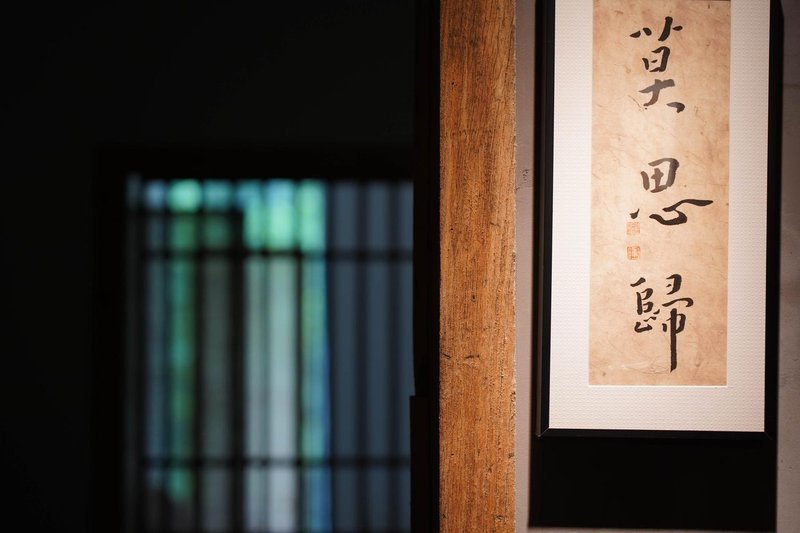 莫思歸